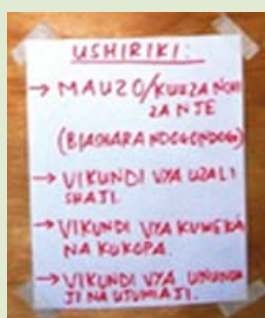 USHIRIKI:
→ MAUZO/KUUZA NCHI
ZA NJE
(BIASHARA NDOGONDOGO)
→ VIKUNDI VYA UZALI
SHAJI.
→ VIKUNDI VYA KUWEKA
NA KUKOPA.
→ VIKUNDI VYA UNUNU
JI NA UTUMIAJI.